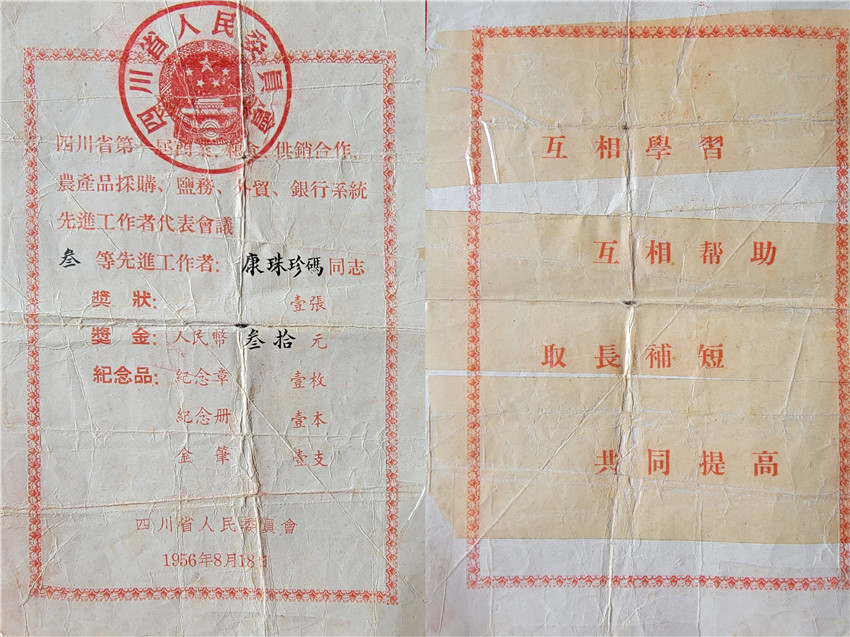 四川省人民委員會
四川省第一屆商業、粮食、供銷合作、
農產品採購、鹽務、外貿、銀行系統
先進工作者代表會議
叁 等先進工作者：康珠珍碼同志
奬狀 壹張
奬金：人民幣 叁拾 元
紀念品：紀念章 壹枚
紀念册 壹本
金筆 壹支
四川省人民委員會
1956年8月18日
互相學習
互相帮助
取長補短
共同提高